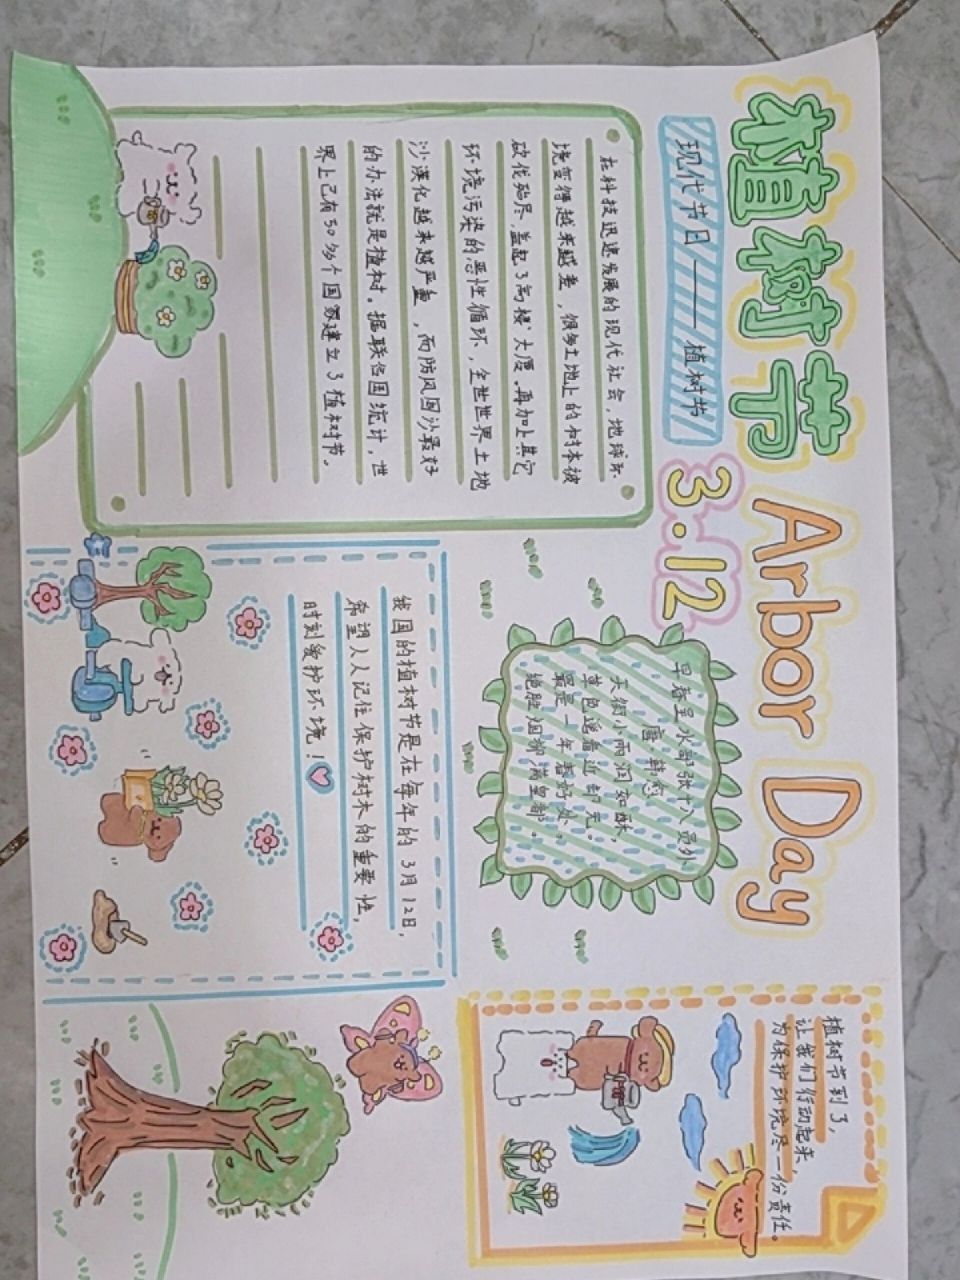 植树节 Arbor Day
现代节日——植树节
3.12
在科技迅速发展的现代社会,地球环
境变得越来越差,很多土地上的树木被
砍伐殆尽,盖起了高楼大厦.再加上其它
环境污染的恶性循环,全世世界土地
沙漠化越来越严重,而防风固沙最好
的办法就是植树。据联合国统计,世
界上已有50多个国家建立了植树节。
早春呈水部张十八员外
唐.韩愈
天街小雨润如酥,
草色遥看近却无。
最是一年春好处,
绝胜烟柳满皇都。
植树节到了,
让我们行动起来,
为保护环境尽一份责任。
我国的植树节是在每年的3月12日,
希望人人记住保护树木的重要性,
时刻爱护环境!